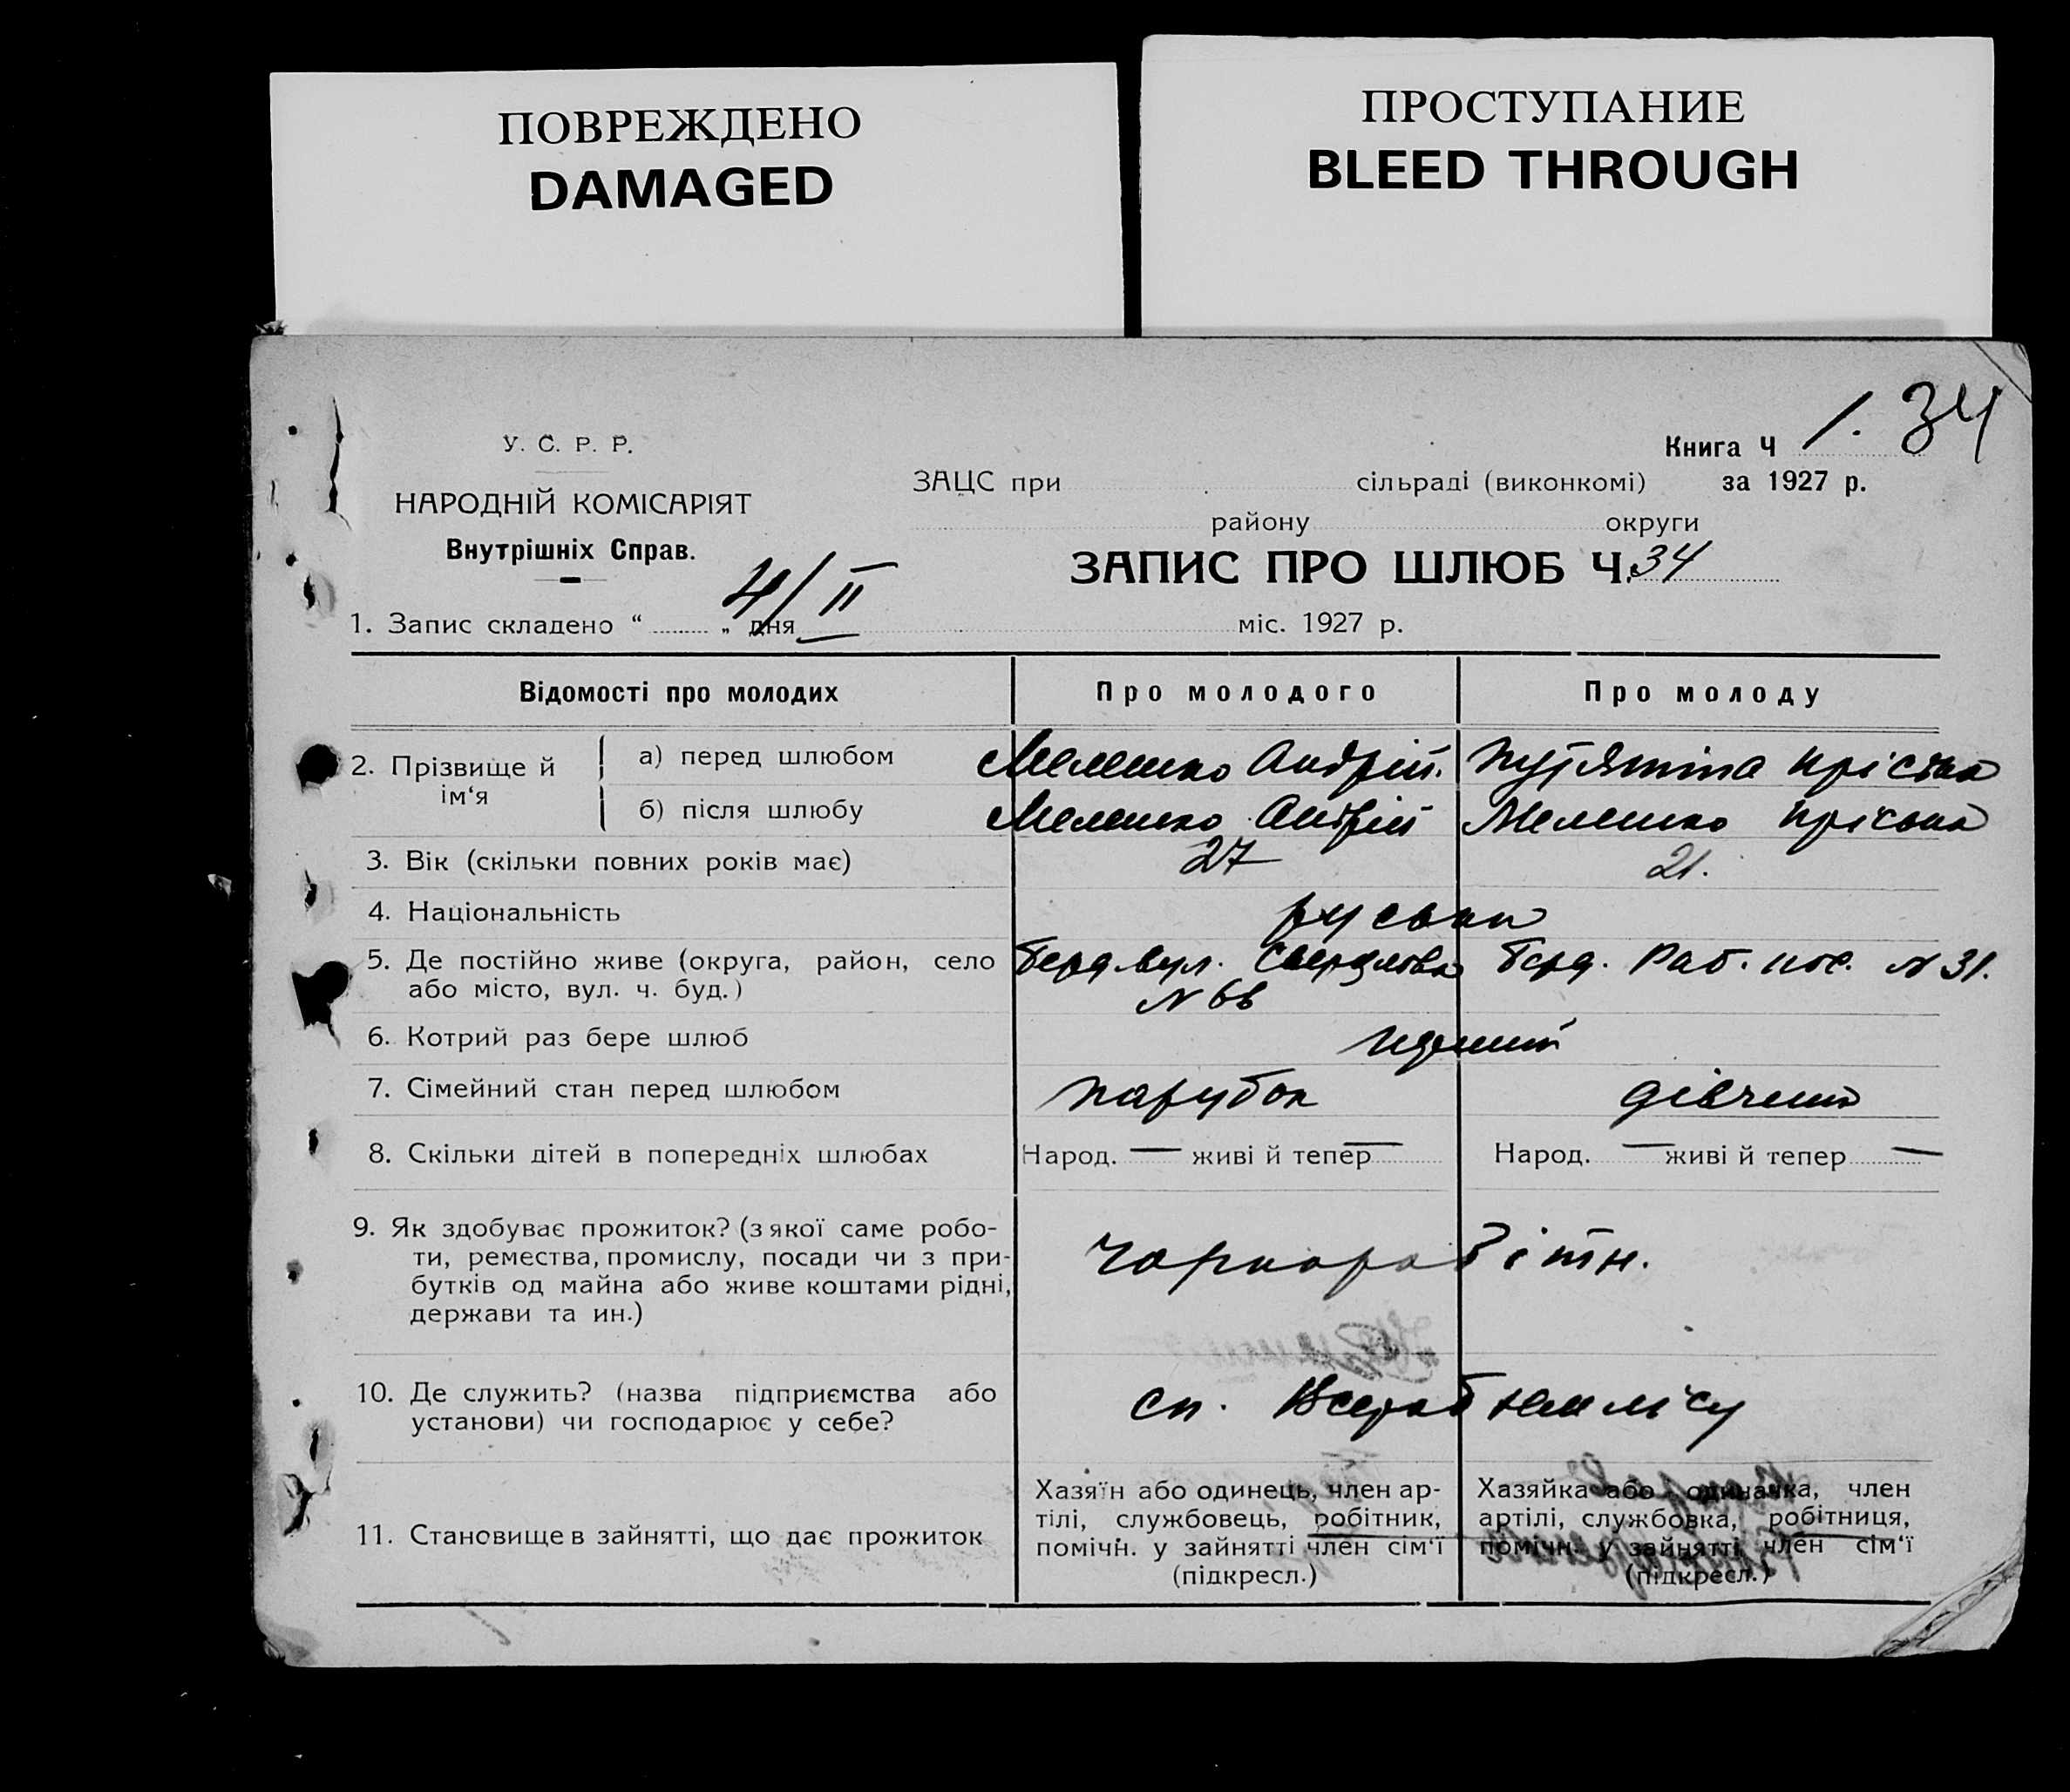 ПОВРЕЖДЕНО
DAMAGED
ПРОСТУПАНИЕ
BLEED THROUGH
У. С. Р. Р.
НАРОДНІЙ КОМІСАРІЯТ
Внутрішніх Справ.
Книга Ч 1. 34
ЗАЦС при сільраді (виконкомі) за 1927 р.
району округи
ЗАПИС ПРО ШЛЮБ Ч. 34
1. Запис складено “ „ дня 4/II міс. 1927 р.
Відомості про молодих Про молодого Про молоду
2. Прізвище й ім‘я
а) перед шлюбом Мелешко Андрій. Путятіна Крістина
б) після шлюбу Мелешко Андрій Мелешко
3. Вік (скільки повних років має) 27 21.
4. Національність
5. Де постійно живе (округа, район, село Берд. вул. Свердлова Берд. Раб. пос. N 31.
або місто, вул. ч. буд.) N 68
6. Котрий раз бере шлюб
7. Сімейний стан перед шлюбом парубок дівчина
8. Скільки дітей в попередніх шлюбах Народ. — живі й тепер — Народ. — живі й тепер —
9. Як здобуває прожиток? (з якої саме робо-
ти, ремества, промислу, посади чи з при-
бутків од майна або живе коштами рідні,
держави та ин.)
чорноробітн.
10. Де служить? (назва підприємства або
установи) чи господарює у себе?
сп. Всеробземлісу
11. Становище в зайнятті, що дає прожиток
Хазяїн або одинець, член ар-
тілі, службовець, робітник,
помічн. у зайнятті член сім‘ї
(підкресл.)
Хазяйка або одиначка, член
артілі, службовка, робітниця,
помічн. у зайнятті член сім‘ї
(підкресл.)